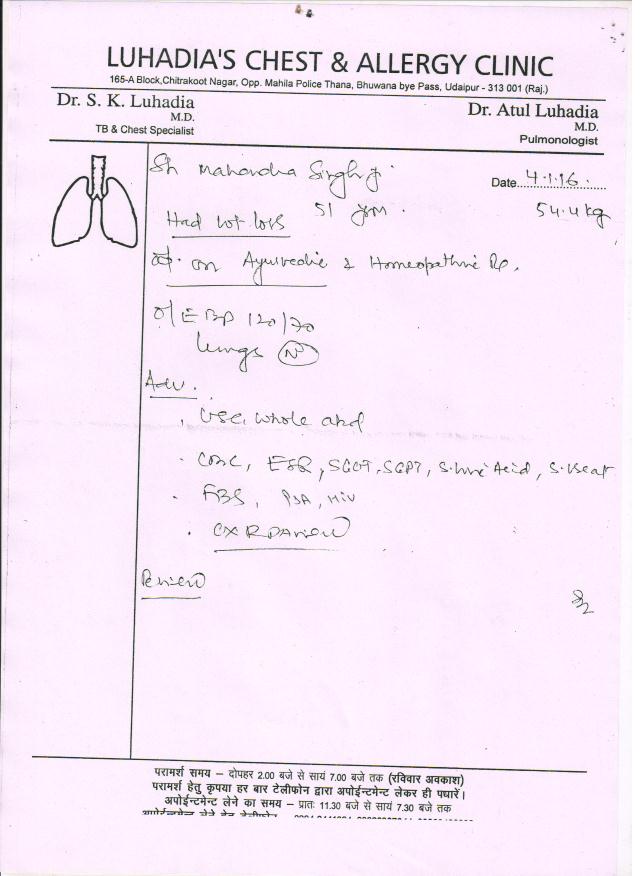 LUHADIA'S CHEST & ALLERGY CLINIC
165-A Block,Chitrakoot Nagar, Opp. Mahila Police Thana, Bhuwana bye Pass, Udaipur - 313 001 (Raj.)
Dr. S. K. Luhadia
M.D.
TB & Chest Specialist
Dr. Atul Luhadia
M.D.
Pulmonologist
Sh Mahendra Singh ji
Date 4.1.16.
51 54.4 kg
Had wt loss
on Ayurvedic & Homeopathic Rx.
O/E BP 120/70
Lungs N
Adv.
USG whole abd
CBC, ESR, SGOT, SGPT, S. Uric Acid, S. Creat
FBS, PSA, HIV
CXR PA view
Review
परामर्श समय – दोपहर 2.00 बजे से सायं 7.00 बजे तक (रविवार अवकाश)
परामर्श हेतु कृपया हर बार टेलीफोन द्वारा अपोईन्टमेन्ट लेकर ही पधारें।
अपोईन्टमेन्ट लेने का समय – प्रातः 11.30 बजे से सायं 7.30 बजे तक